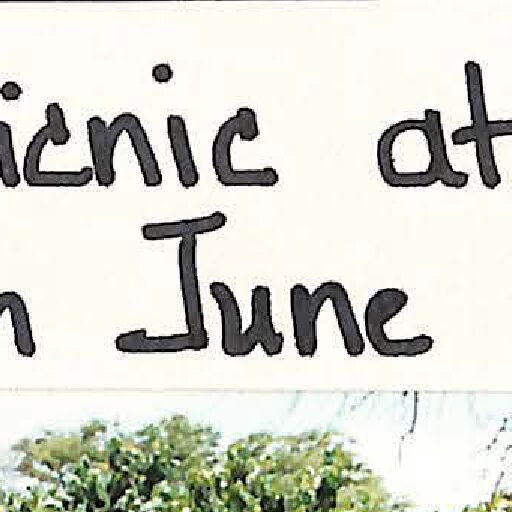 icnic at
n June